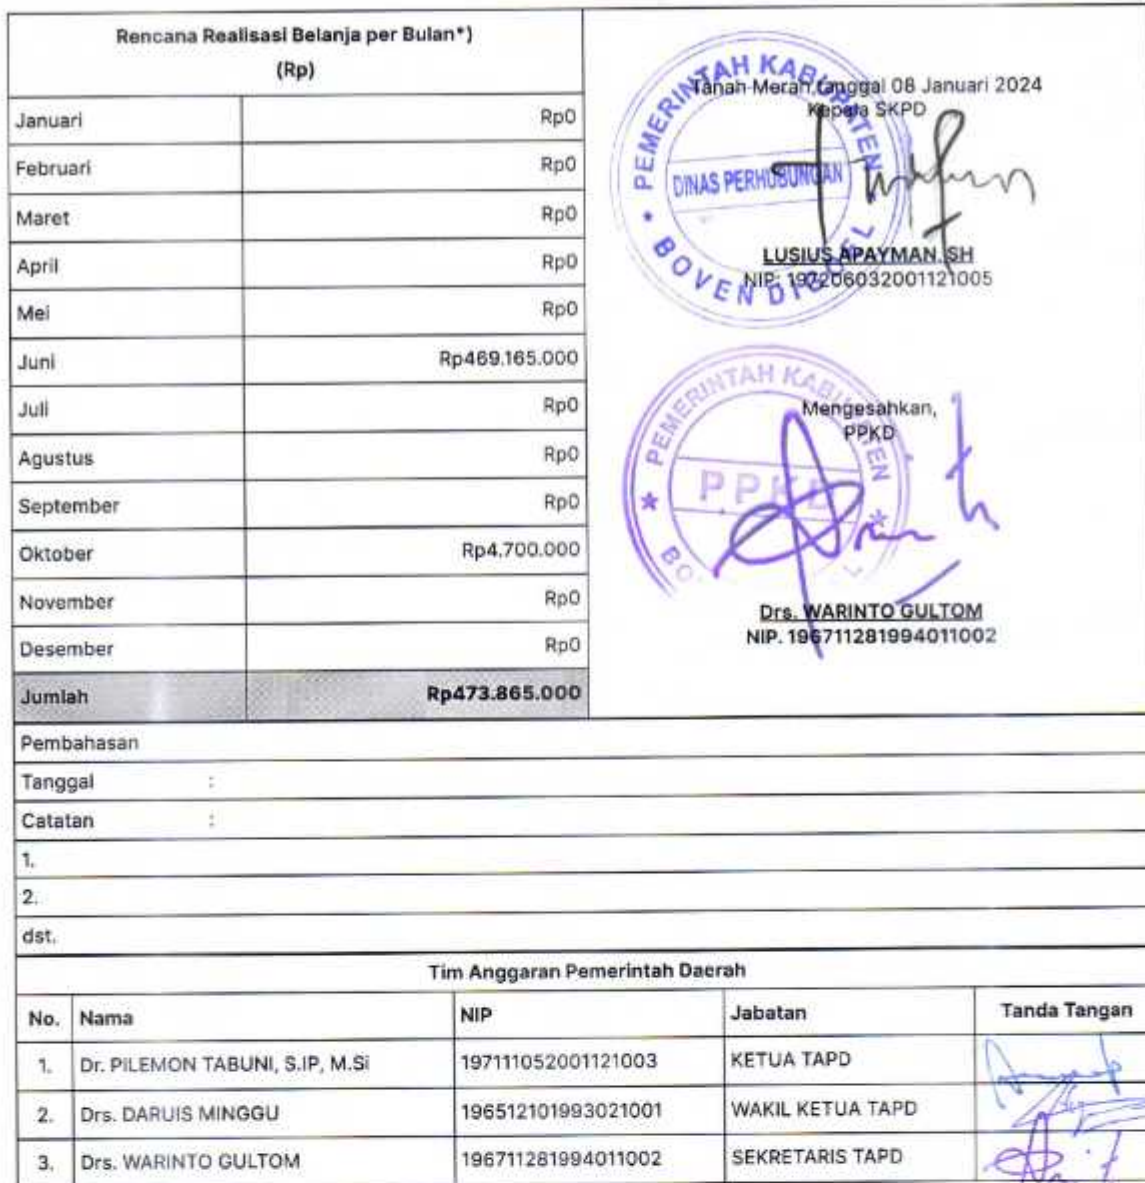 Rencana Realisasi Belanja per Bulan*)
(Rp)
Januari Rp0
Februari Rp0
Maret Rp0
April Rp0
Mei Rp0
Juni Rp469.165.000
Juli Rp0
Agustus Rp0
September Rp0
Oktober Rp4.700.000
November Rp0
Desember Rp0
Jumlah Rp473.865.000
Tanah Merah, tanggal 08 Januari 2024
Kepala SKPD
PEMERINTAH KABUPATEN
DINAS PERHUBUNGAN
BOVEN DIGOEL
LUSIUS APAYMAN, SH
NIP: 197206032001121005
PEMERINTAH KABUPATEN
Mengesahkan,
PPKD
PPKD
Drs. WARINTO GULTOM
NIP. 196711281994011002
Pembahasan
Tanggal :
Catatan :
1.
2.
dst.
Tim Anggaran Pemerintah Daerah
No. Nama NIP Jabatan Tanda Tangan
1. Dr. PILEMON TABUNI, S.IP, M.Si 197111052001121003 KETUA TAPD
2. Drs. DARUIS MINGGU 196512101993021001 WAKIL KETUA TAPD
3. Drs. WARINTO GULTOM 196711281994011002 SEKRETARIS TAPD